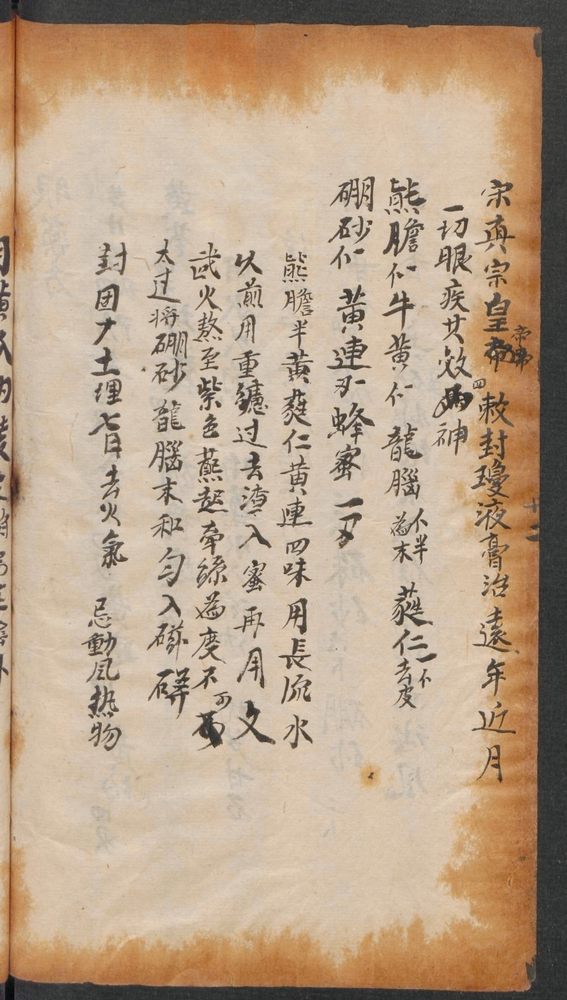 宋真宗皇帝敕封瓊液膏治遠年近月
一切眼疾其效如神
熊膽 牛黃 龍腦 半 為末 蕤仁 去皮
硼砂 黃連 蜂蜜 一
熊膽半黃蕤仁黃連四味用長流水
火煎用重綿过去渣入蜜再用文
武火熬至紫色蘸起牽絲為度不可
太过將硼砂龍腦末和匀入磁
封固 土埋七日去火氣 忌動風热物